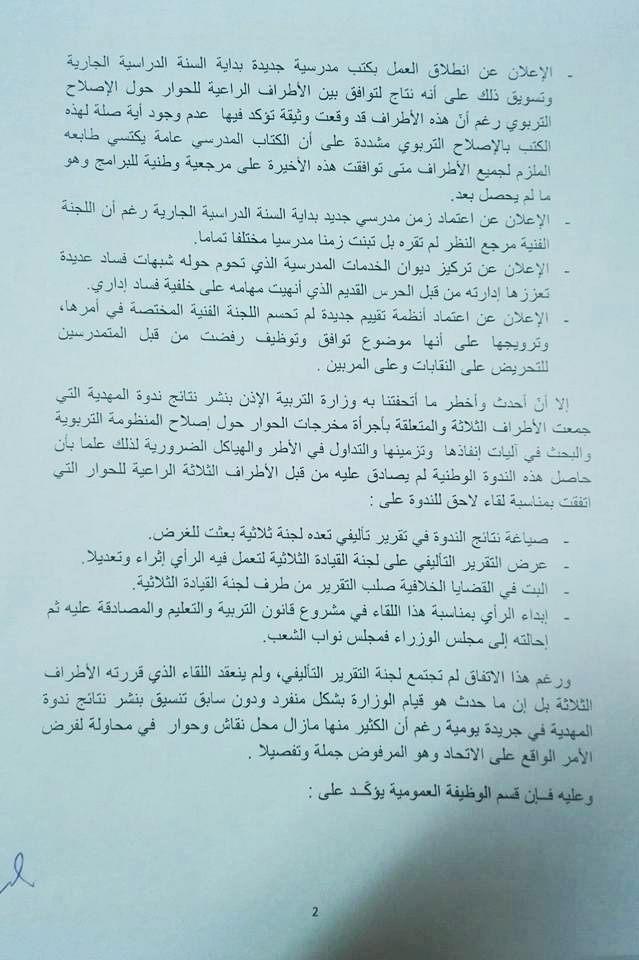 - الإعلان عن انطلاق العمل بكتب مدرسية جديدة بداية السنة الدراسية الجارية
وتسويق ذلك على أنه نتاج لتوافق بين الأطراف الراعية للحوار حول الإصلاح
التربوي رغم أنّ هذه الأطراف قد وقعت وثيقة تؤكد فيها عدم وجود أية صلة لهذه
الكتب بالإصلاح التربوي مشددة على أن الكتاب المدرسي عامة يكتسي طابعه
الملزم لجميع الأطراف متى توافقت هذه الأخيرة على مرجعية وطنية للبرامج وهو
ما لم يحصل بعد.
- الإعلان عن اعتماد زمن مدرسي جديد بداية السنة الدراسية الجارية رغم أن اللجنة
الفنية مرجع النظر لم تقره بل تبنت زمنا مدرسيا مختلفا تماما.
- الإعلان عن تركيز ديوان الخدمات المدرسية الذي تحوم حوله شبهات فساد عديدة
تعززها إدارته من قبل الحرس القديم الذي أنهيت مهامه على خلفية فساد إداري.
- الإعلان عن اعتماد أنظمة تقييم جديدة لم تحسم اللجنة الفنية المختصة في أمرها،
وترويجها على أنها موضوع توافق وتوظيف رفضت من قبل المتمدرسين
للتحريض على النقابات وعلى المربين .
إلا أنّ أحدث وأخطر ما أتحفتنا به وزارة التربية الإذن بنشر نتائج ندوة المهدية التي
جمعت الأطراف الثلاثة والمتعلقة بأجرأة مخرجات الحوار حول إصلاح المنظومة التربوية
والبحث في آليات إنفاذها وتزمينها والتداول في الأطر والهياكل الضرورية لذلك علما بأن
حاصل هذه الندوة الوطنية لم يصادق عليه من قبل الأطراف الثلاثة الراعية للحوار التي
اتفقت بمناسبة لقاء لاحق للندوة على :
- صياغة نتائج الندوة في تقرير تأليفي تعده لجنة ثلاثية بعثت للغرض.
- عرض التقرير التأليفي على لجنة القيادة الثلاثية لتعمل فيه الرأي إثراء وتعديلا.
- البت في القضايا الخلافية صلب التقرير من طرف لجنة القيادة الثلاثية.
- إبداء الرأي بمناسبة هذا اللقاء في مشروع قانون التربية والتعليم والمصادقة عليه ثم
إحالته إلى مجلس الوزراء فمجلس نواب الشعب.
ورغم هذا الاتفاق لم تجتمع لجنة التقرير التأليفي، ولم ينعقد اللقاء الذي قررته الأطراف
الثلاثة بل إن ما حدث هو قيام الوزارة بشكل منفرد ودون سابق تنسيق بنشر نتائج ندوة
المهدية في جريدة يومية رغم أن الكثير منها مازال محل نقاش وحوار في محاولة لفرض
الأمر الواقع على الاتحاد وهو المرفوض جملة وتفصيلا .
وعليه فـإن قسم الوظيفة العمومية يؤكّـد على :
2